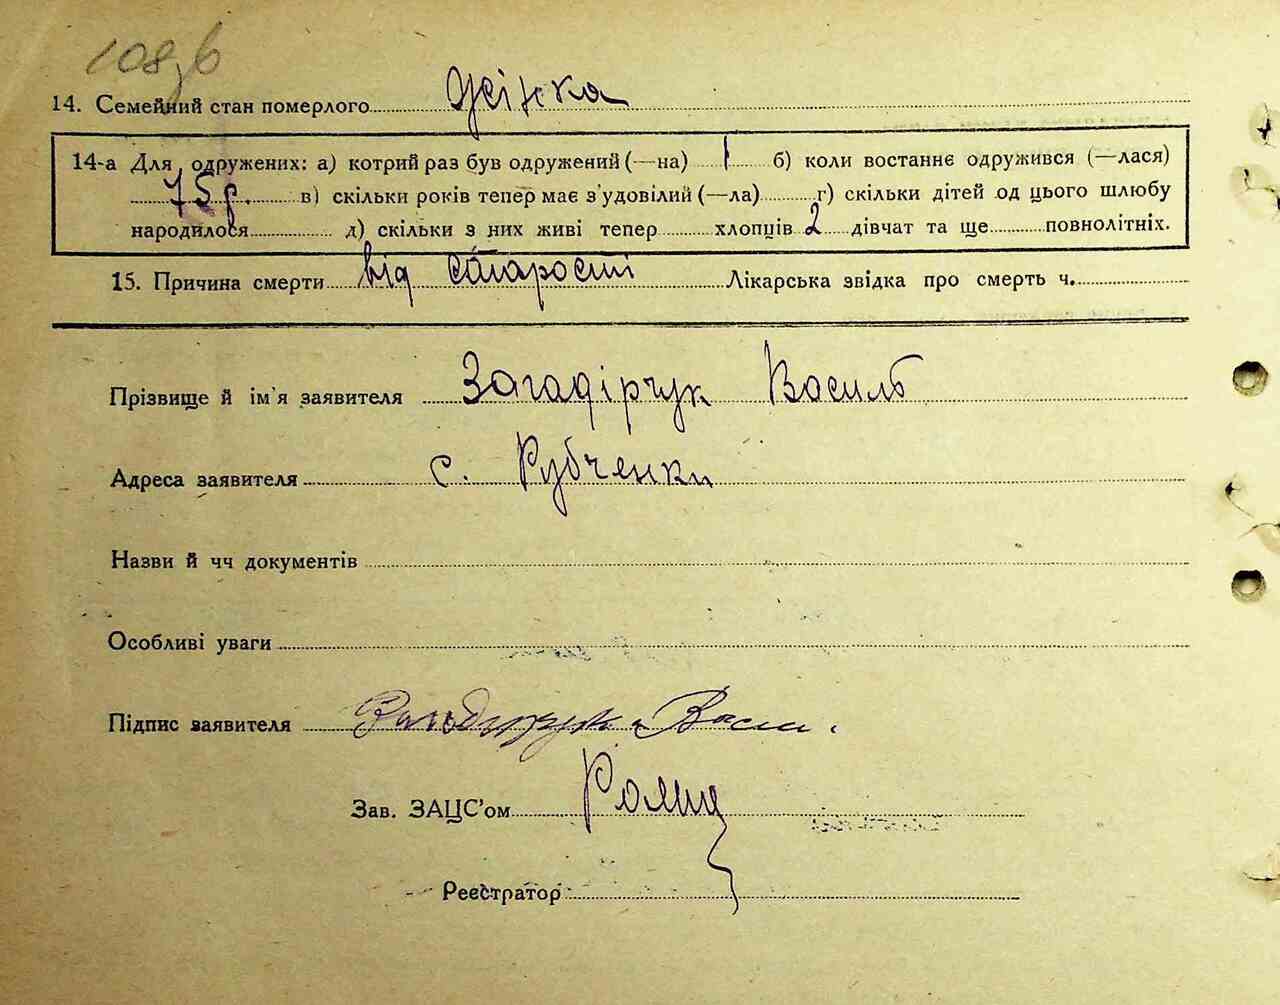 108зв
14. Семейний стан померлого Жінка
14-а Для одружених: а) котрий раз був одружений (—на) 1 б) коли востаннє одружився (—лася)
75 р. в) скільки років тепер має з'удовілий (—ла) г) скільки дітей од цього шлюбу
народилося д) скільки з них живі тепер хлопців 2 дівчат та ще повнолітніх.
15. Причина смерти від старости Лікарська звідка про смерть ч.
Прізвище й ім'я заявителя Загадірчук Василь
Адреса заявителя с. Рубченки
Назви й чч документів
Особливі уваги
Підпис заявителя
Зав. ЗАЦС'ом
Реєстратор